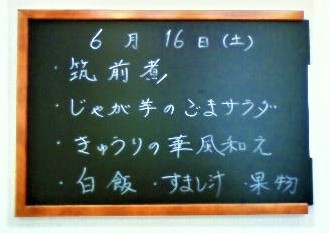 6月16日(土)
・筑前煮
・じゃが芋のごまサラダ
・きゅうりの華風和え
・白飯・すまし汁・果物